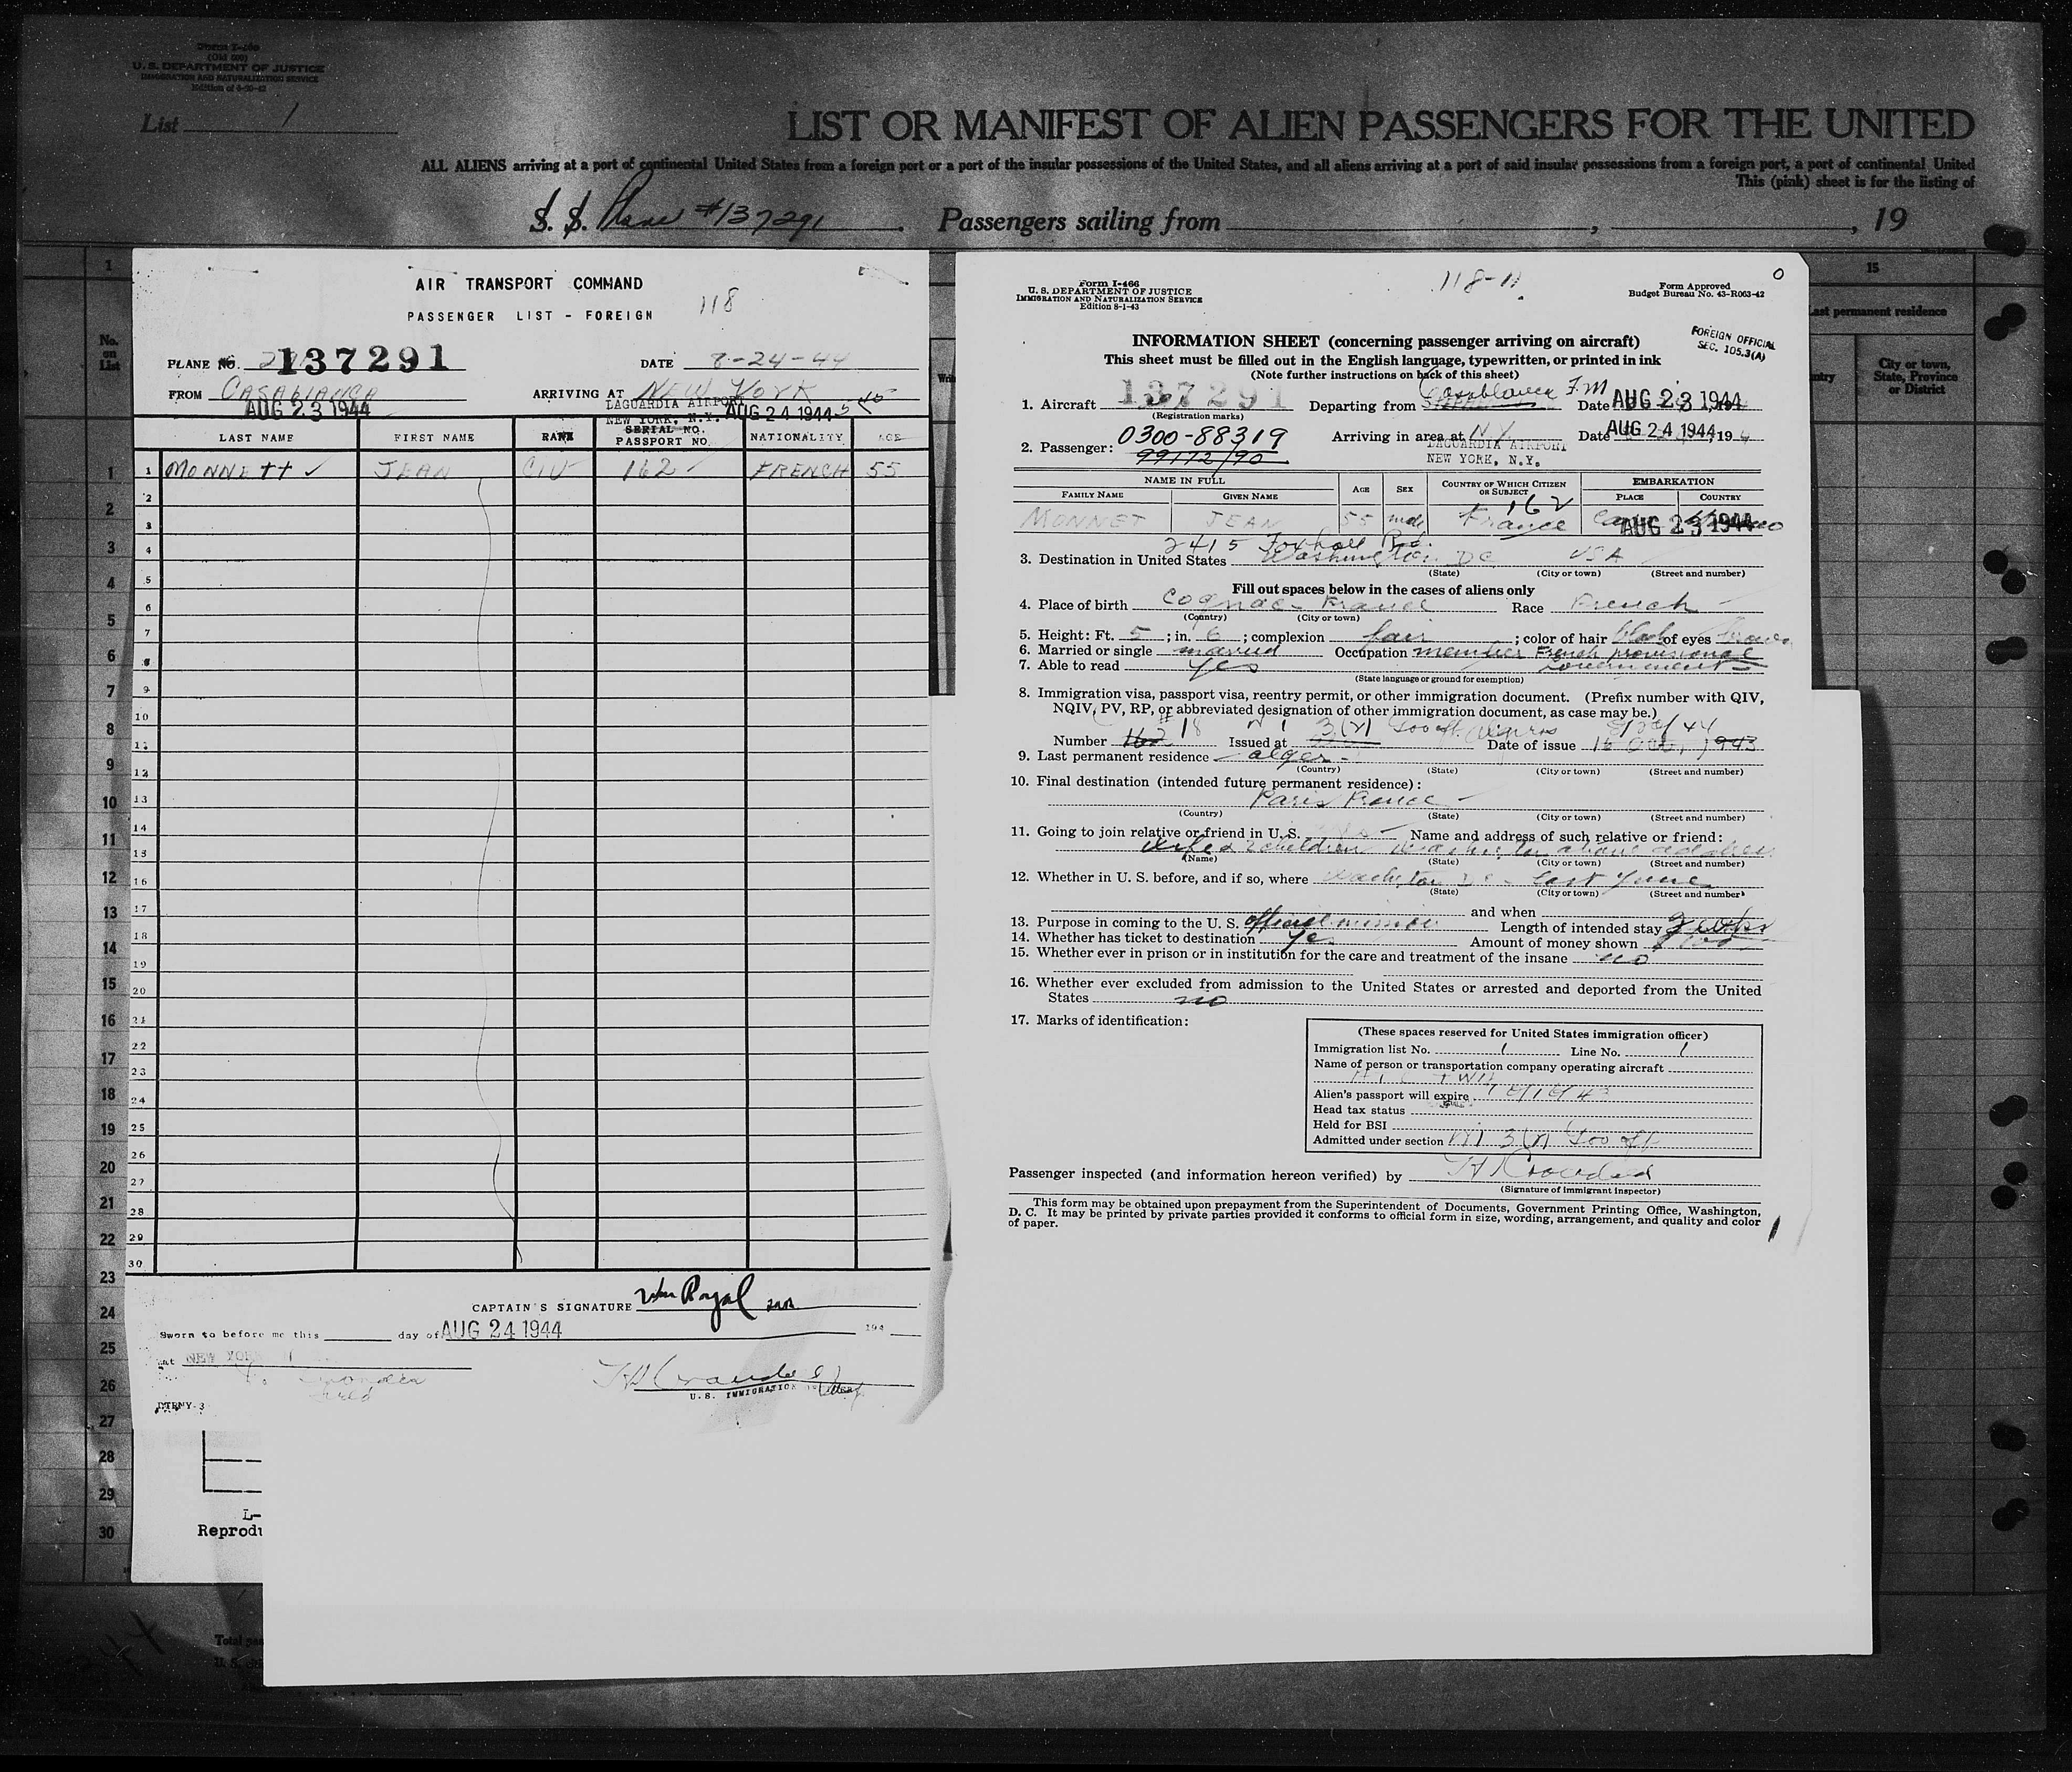 Form I-466
(Old 500)
U. S. DEPARTMENT OF JUSTICE
IMMIGRATION AND NATURALIZATION SERVICE
List 1
LIST OR MANIFEST OF ALIEN PASSENGERS FOR THE UNITED
ALL ALIENS arriving at a port of continental United States from a foreign port or a port of the insular possessions of the United States, and all aliens arriving at a port of said insular possessions from a foreign port, a port of continental United
This (pink) sheet is for the listing of
S. S. Plane #137291. Passengers sailing from , , 19
1
No. on List
AIR TRANSPORT COMMAND
PASSENGER LIST - FOREIGN
118
PLANE NO. 137291 DATE 8-24-44
FROM CASABLANCA ARRIVING AT NEW YORK
AUG 23 1944 LAGUARDIA AIRPORT
NEW YORK, N.Y. AUG 24 1944
LAST NAME FIRST NAME RANK SERIAL NO. PASSPORT NO. NATIONALITY AGE
1 MONNETT ✓ JEAN CIV 162 ✓ FRENCH 55
2
3
4
5
6
7
8
9
10
11
12
13
14
15
16
17
18
19
20
21
22
23
24
25
26
27
28
29
30
CAPTAIN'S SIGNATURE Royal
Sworn to before me this day of AUG 24 1944 194
at NEW YORK
U.S. IMMIGRATION
DTRNY-3
L-
Reprodu
1
2
3
4
5
6
7
8
9
10
11
12
13
14
15
16
17
18
19
20
21
22
23
24
25
26
27
28
29
30
Form I-466
U. S. DEPARTMENT OF JUSTICE
IMMIGRATION AND NATURALIZATION SERVICE
Edition 8-1-43
118-11
Form Approved
Budget Bureau No. 43-R063-42
FOREIGN OFFICIAL
SEC. 105.3(A)
INFORMATION SHEET (concerning passenger arriving on aircraft)
This sheet must be filled out in the English language, typewritten, or printed in ink
(Note further instructions on back of this sheet)
1. Aircraft 137291 Departing from Casablanca F.M Date AUG 23 1944
(Registration marks)
0300-88319 Arriving in area at N.Y. Date AUG 24 1944 19
2. Passenger: 99172/90 LAGUARDIA AIRPORT
NEW YORK, N.Y.
NAME IN FULL AGE SEX COUNTRY OF WHICH CITIZEN OR SUBJECT EMBARKATION
FAMILY NAME GIVEN NAME PLACE COUNTRY
162
MONNET JEAN 55 male France AUG 23 1944
2415 Foxhall Rd.
3. Destination in United States Washington DC USA
(State) (City or town) (Street and number)
Fill out spaces below in the cases of aliens only
4. Place of birth Cognac - France Race French -
(Country) (City or town)
5. Height: Ft. 5 ; in. 6 ; complexion fair ; color of hair black of eyes brown
6. Married or single married Occupation member French provisional
7. Able to read yes Government
(State language or ground for exemption)
8. Immigration visa, passport visa, reentry permit, or other immigration document. (Prefix number with QIV,
NQIV, PV, RP, or abbreviated designation of other immigration document, as case may be.)
Number 162 #18 Issued at 3(1) Date of issue 16 Oct. 1943
9. Last permanent residence Alger -
(Country) (State) (City or town) (Street and number)
10. Final destination (intended future permanent residence):
Paris France -
(Country) (State) (City or town) (Street and number)
11. Going to join relative or friend in U. S. Name and address of such relative or friend:
Wife & 2 children Washington above address
(Name) (State) (City or town) (Street and number)
12. Whether in U. S. before, and if so, where Washington DC - last June
(State) (City or town) (Street and number)
and when
13. Purpose in coming to the U. S. official mission Length of intended stay
14. Whether has ticket to destination yes Amount of money shown
15. Whether ever in prison or in institution for the care and treatment of the insane no
16. Whether ever excluded from admission to the United States or arrested and deported from the United
States no
17. Marks of identification:
(These spaces reserved for United States immigration officer)
Immigration list No. 1 Line No. 1
Name of person or transportation company operating aircraft
Alien's passport will expire
Head tax status
Held for BSI
Admitted under section 3(1) Goo off
Passenger inspected (and information hereon verified) by
(Signature of immigrant inspector)
This form may be obtained upon prepayment from the Superintendent of Documents, Government Printing Office, Washington,
D. C. It may be printed by private parties provided it conforms to official form in size, wording, arrangement, and quality and color
of paper.
15
ast permanent residence
ntry
City or town, State, Province or District
Total pas